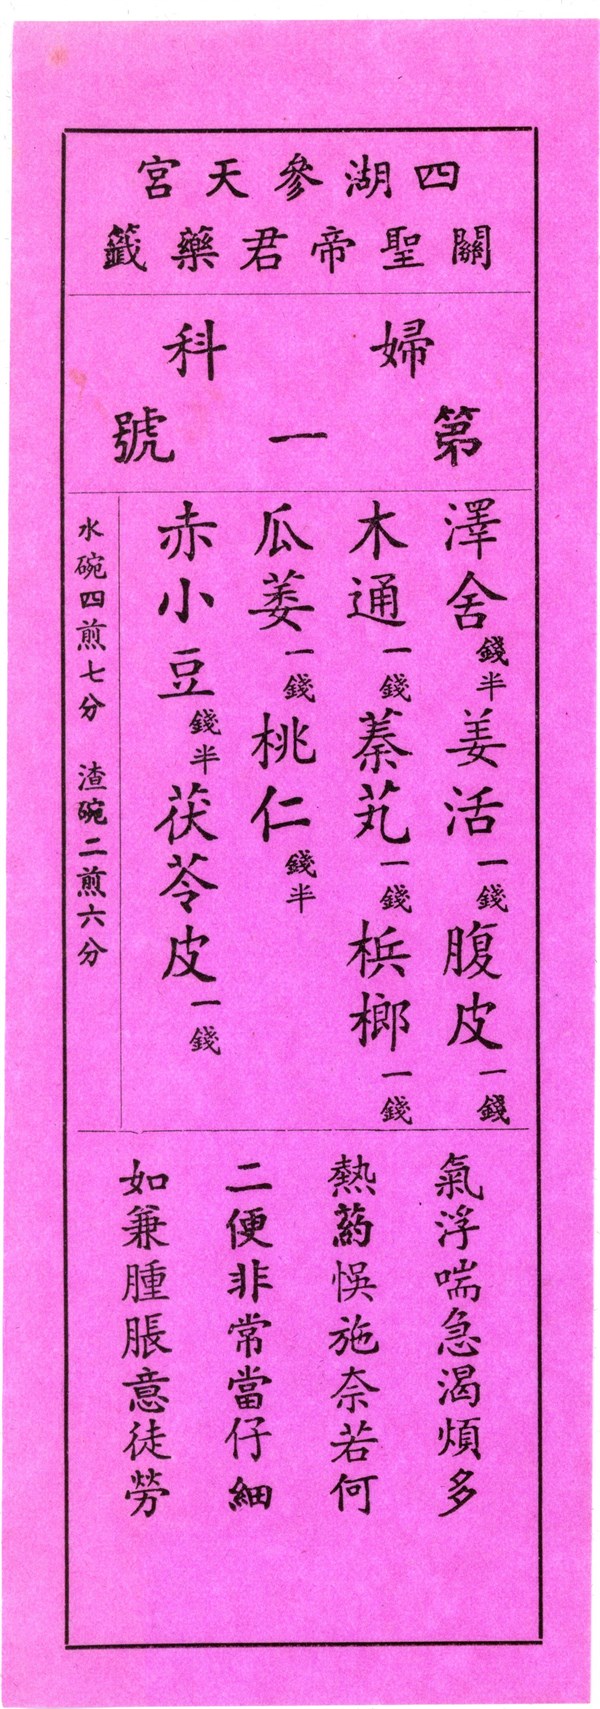 四湖參天宮
關聖帝君藥籤
婦科
第一號
澤舍錢半姜活一錢腹皮一錢
木通一錢蓁艽一錢梹榔一錢
瓜萎一錢桃仁錢半
赤小豆錢半茯苓皮一錢
水碗四煎七分　渣碗二煎六分
氣浮喘急渴煩多
熱葯悞施奈若何
二便非常當仔細
如兼腫脹意徒勞